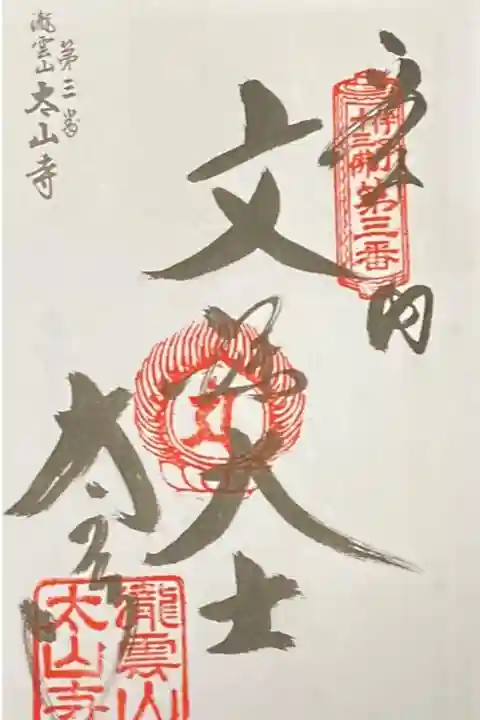 奉納
伊予
十三佛
第三番
文殊大士
太山寺
瀧雲山
太山寺
第三番
瀧雲山 太山寺